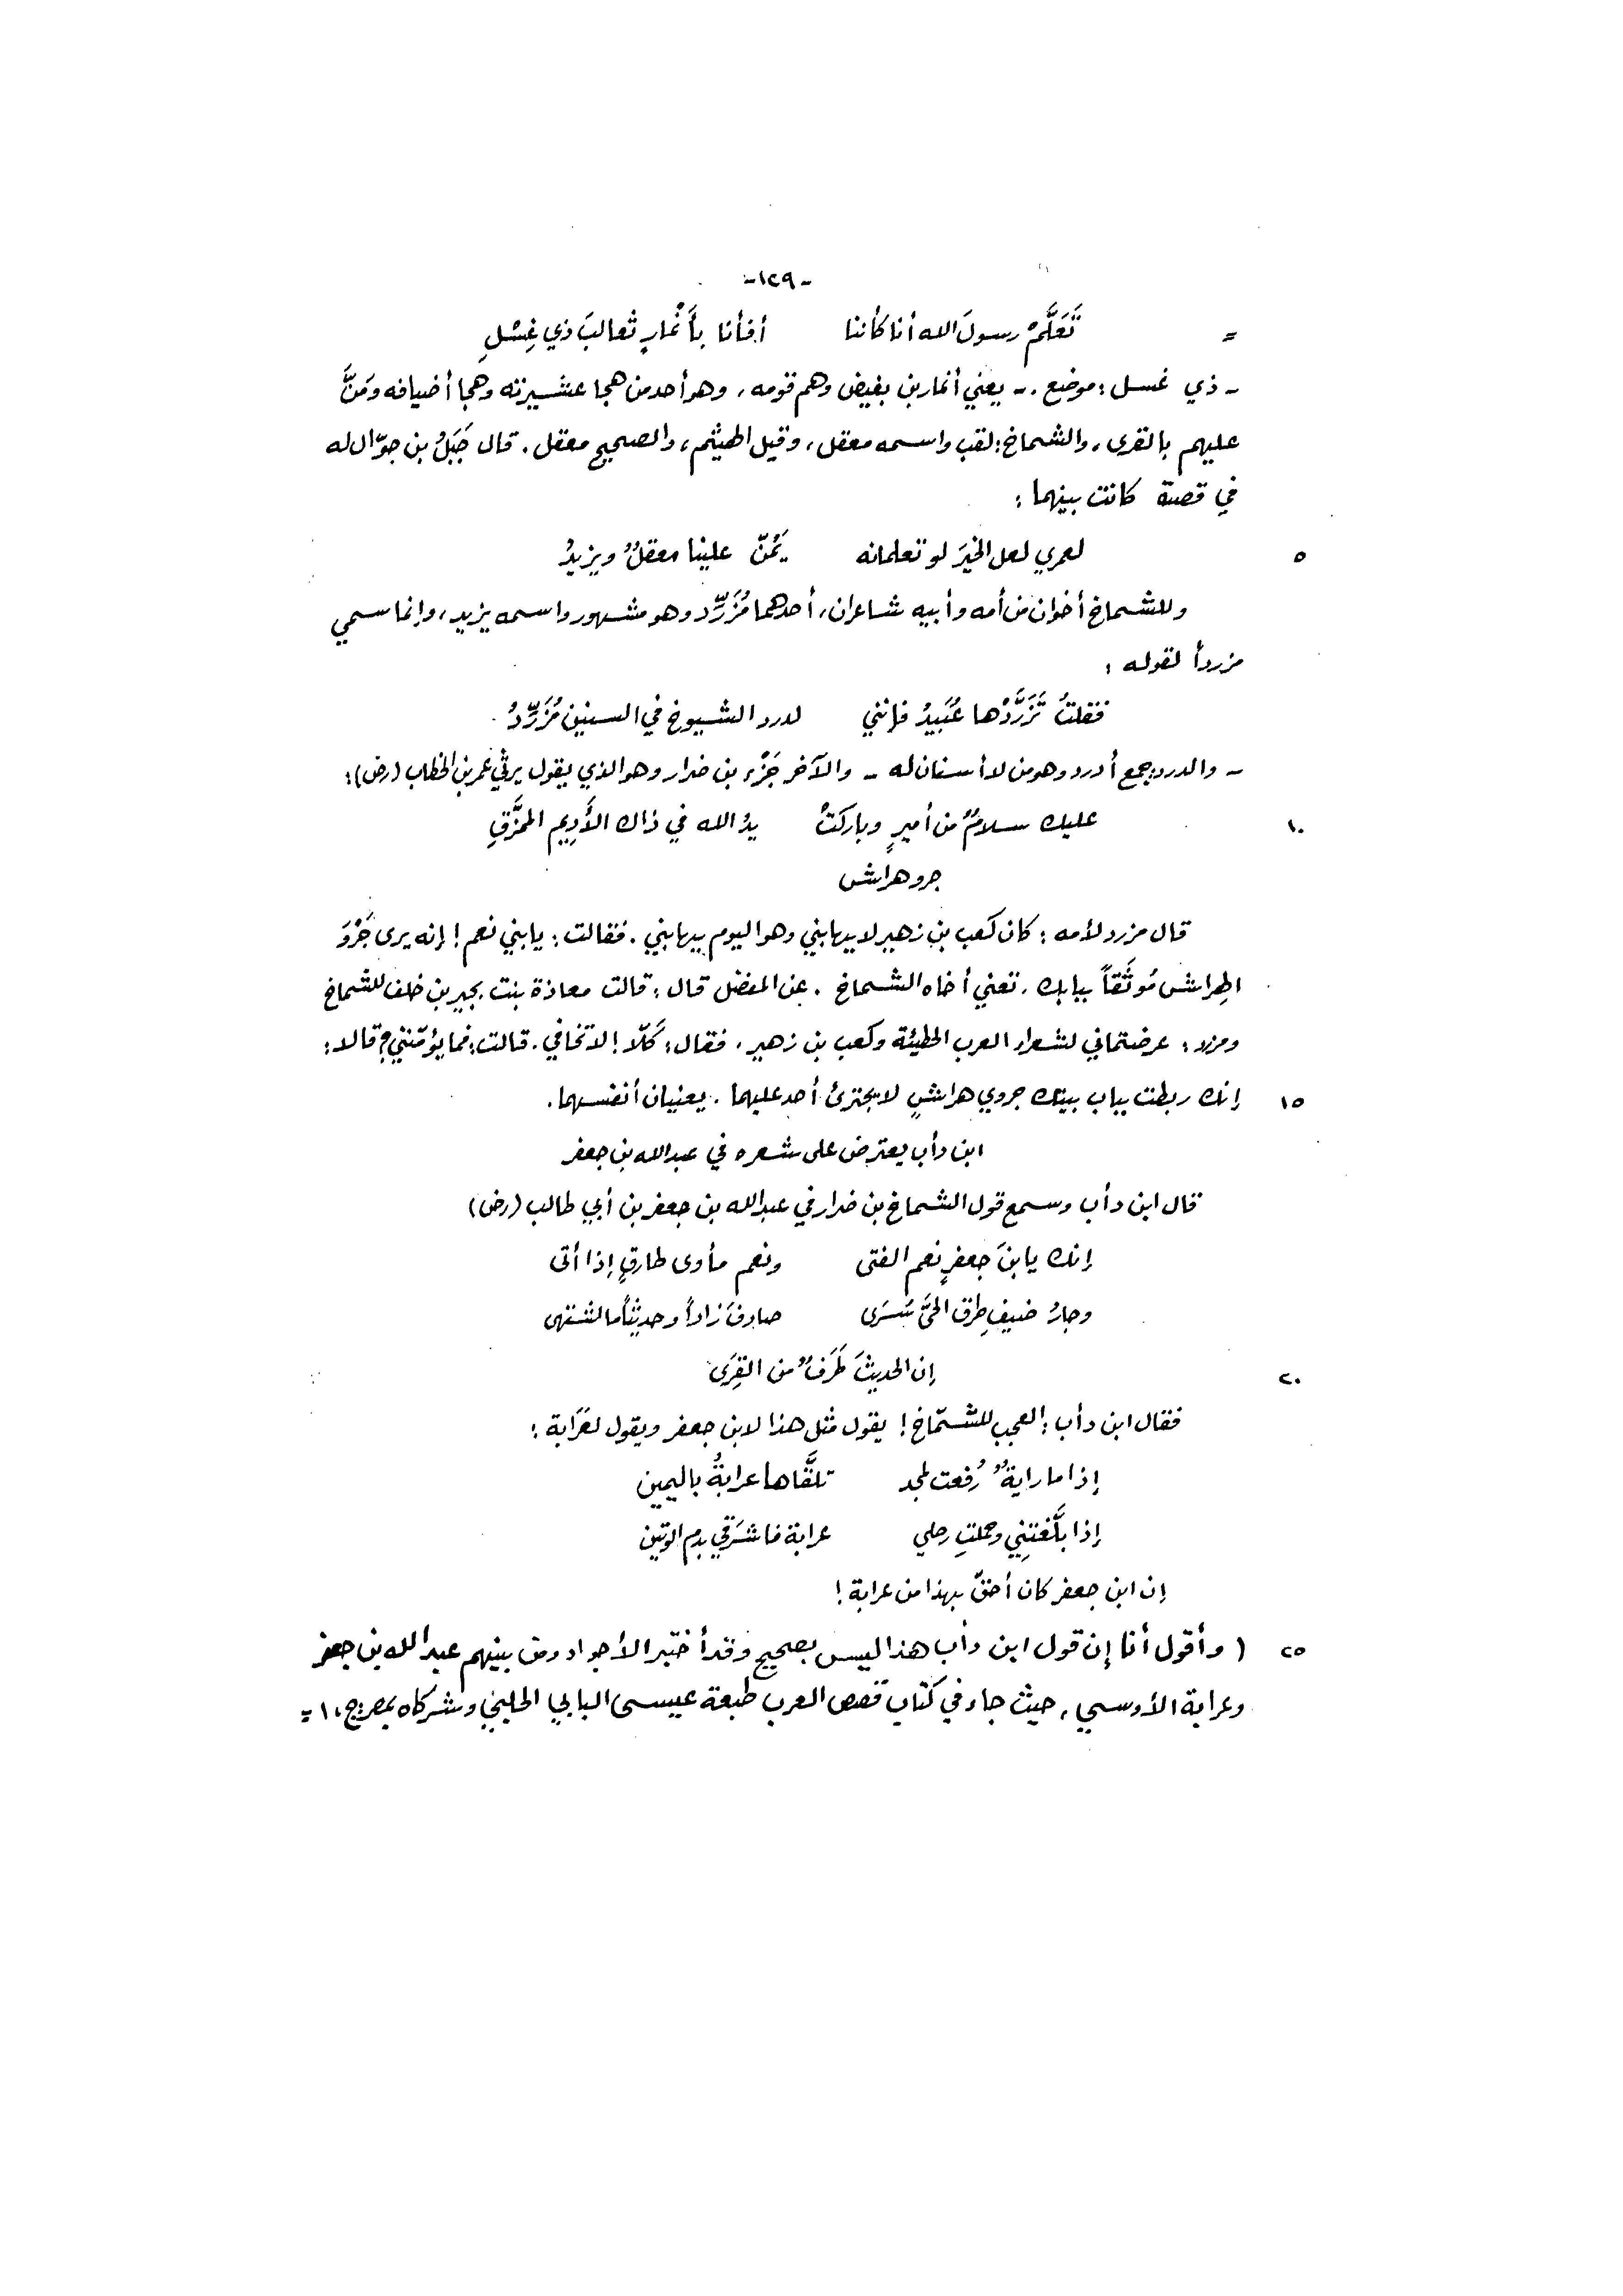 -١٢٩-
= تَعَلَّمْ رسولَ الله أنا كأننا أفأنا بأَنْمارٍ ثعالبَ ذي غِسْلِ
- ذي غسل : موضع . - يعني أنمار بن بغيض وهم قومه ، وهو أحد من هجا عشيرته وهجا أضيافه ومَنَّ
عليهم بالقرى ، والشماخ : لقب واسمه معقل ، وقيل الهيثم ، والصحيح معقل . قال جَبَلُ بن جوّال له
في قصة كانت بينهما :
٥ لعمري لعل الخيرَ لو تعلمانه يَمُنّ علينا معقلٌ ويزيدُ
وللشماخ أخوان من أمه وأبيه شاعران ، أحدهما مُزَرِّد وهو مشهور واسمه يزيد ، وإنما سمي
مزرداً لقوله :
فقلتُ تَزَرَّدْها عُبَيدُ فإنني لدرد الشيوخ في السنين مُزَرِّدُ
- والدرد : جمع أدرد وهو من لا أسنان له - والآخر جَزْء بن ضرار وهو الذي يقول يرثي عمر بن الخطاب (رض) :
١٠ عليك سلامٌ من أميرٍ وباركتْ يدُ الله في ذاك الأَدِيم الممزَّقِ
جرو هراش
قال مزرد لأمه : كان كعب بن زهير لا يهابني وهو اليوم يهابني . فقالت : يا بني نعم ! إنه يرى جَرْوَ
الهِراش مُوثَقاً ببابك . تعني أخاه الشماخ . عن المفضل قال : قالت معاذة بنت بجير بن خلف للشماخ
ومزرد : عرضتماني لشعراء العرب الحطيئة وكعب بن زهير . فقال : كَلّا ! لا تخافي . قالت : فما يؤمّنني ؟ قالا :
١٥ إنك ربطت بباب بيتك جروي هراشٍ لا يجترئ أحد عليهما . يعنيان أنفسهما .
ابن دأب يعترض على شعره في عبدالله بن جعفر
قال ابن دأب وسمع قول الشماخ بن ضرار في عبدالله بن جعفر بن أبي طالب (رض)
إنك يا بنَ جعفرٍ نعم الفتى ونعم مأوى طارقٍ إذا أتى
وجارُ ضيفٍ طرق الحيَّ سَرَى صادفَ زاداً وحديثاً ما اشتهى
٢٠ إن الحديثَ طَرَفٌ من القِرَى
فقال ابن دأب : العجب للشّماخ ! يقول مثل هذا لابن جعفر ويقول لعَرَابة :
إذا ما رايةٌ رُفعت لمجد تلقَّاها عرابةُ باليمين
إذا بلَّغتِنِي وحملتِ رحلي عرابة فاشرَقي بدم الوتين
إن ابن جعفر كان أحقّ بهذا من عرابة !
٢٥ ( وأقول أنا إن قول ابن دأب هذا ليس بصحيح وقد أختبر الأجواد ومن بينهم عبدالله بن جعفر
وعرابة الأوسي ، حيث جاء في كتاب قصص العرب طبعة عيسى البابي الحلبي وشركاه بمصر ج ، ١ =